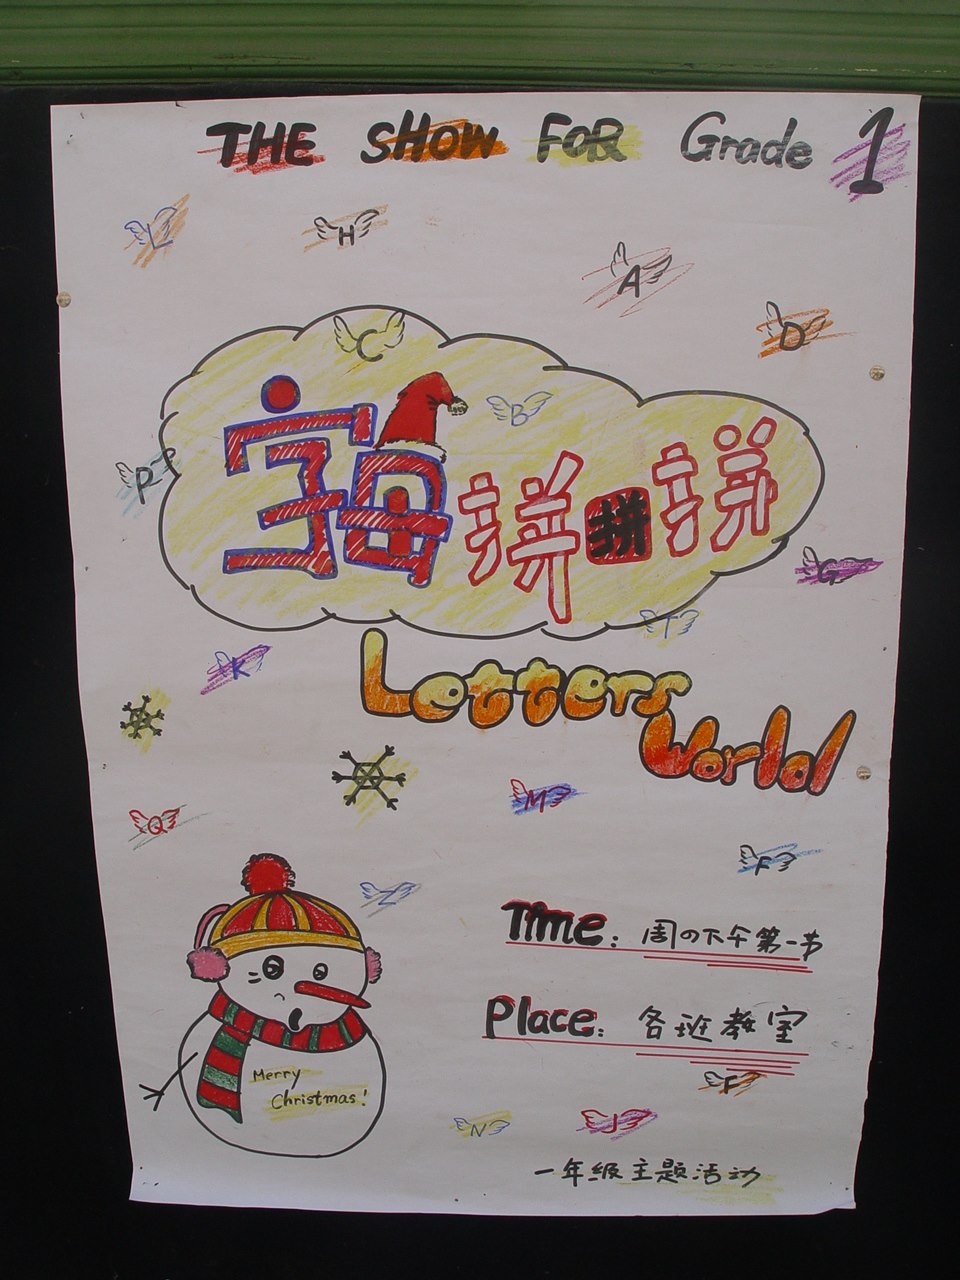 THE SHOW FOR Grade 1
L
H
A
D
C
B
字母拼拼拼
P
G
T
K
Letters
World
M
Q
F
Z
Time: 周四下午第一节
Place: 各班教室
F
Merry
Christmas!
N
J
一年级主题活动